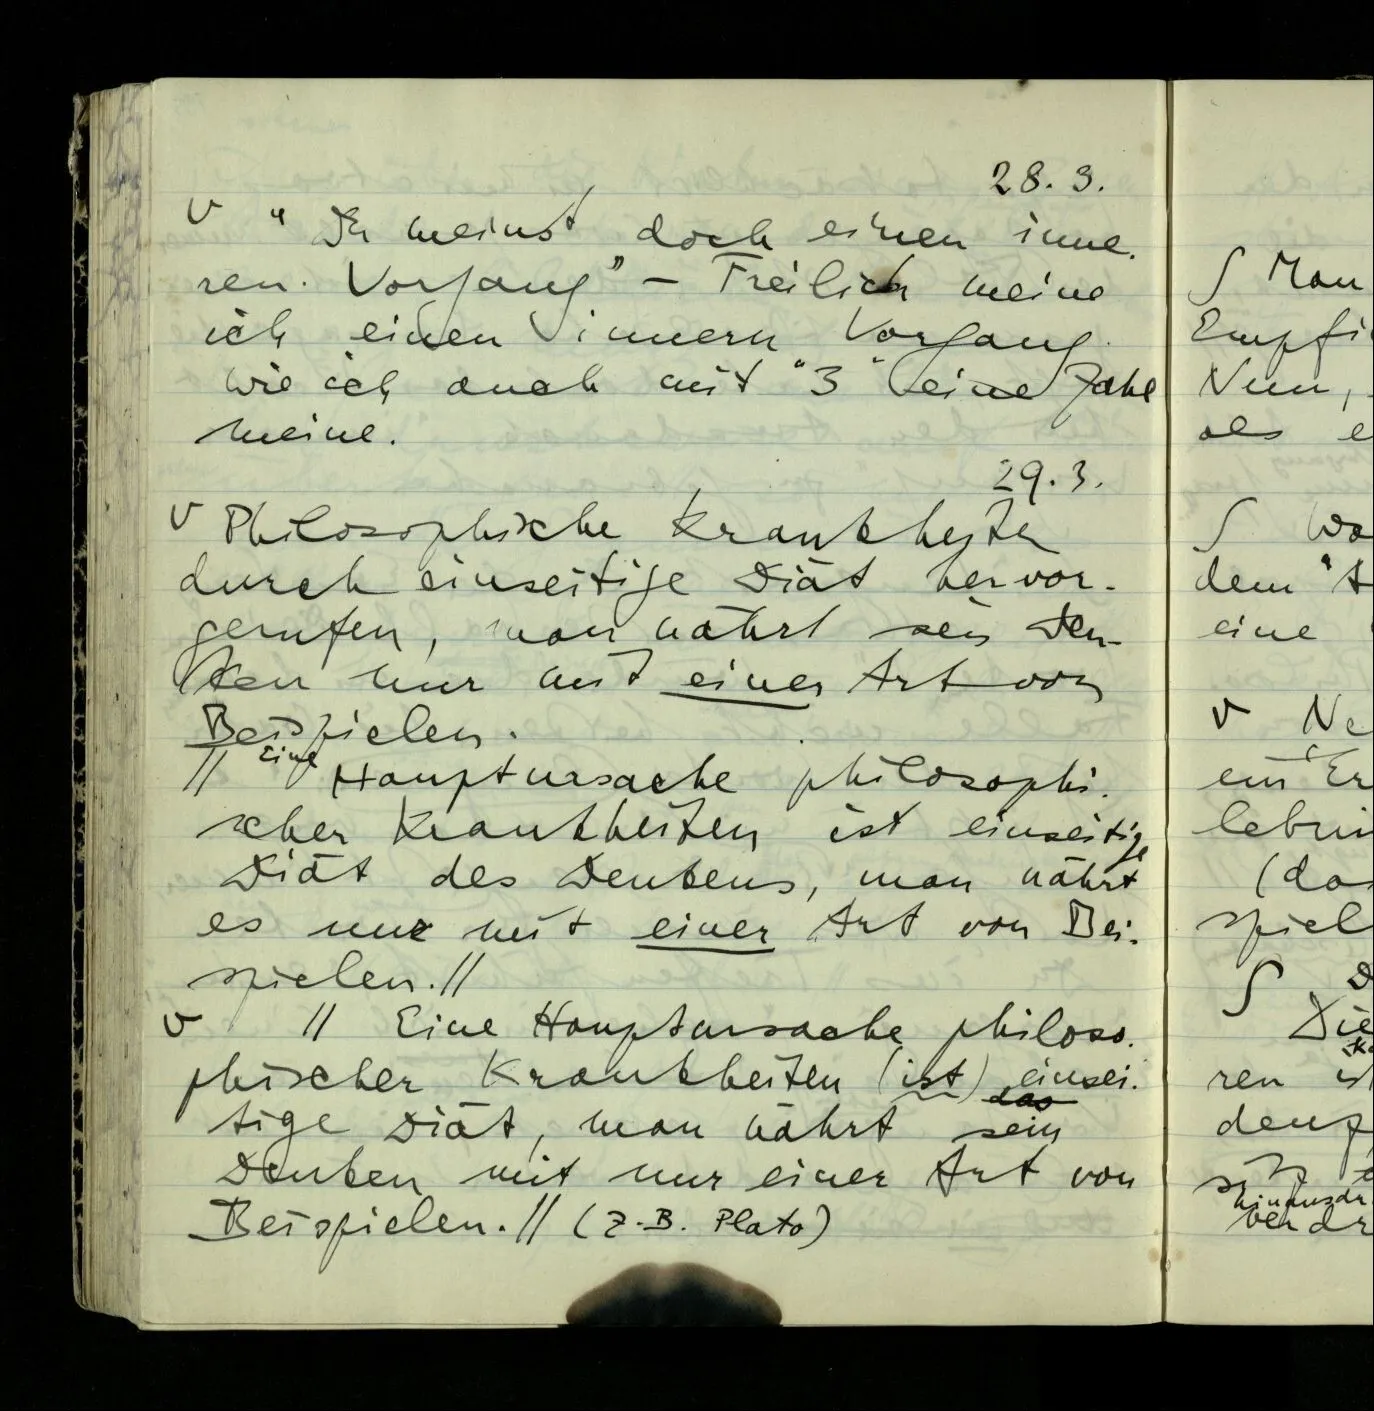 28.3.
v "Du meinst doch einen inne-
ren Vorgang" – Freilich meine
ich einen innern Vorgang
wie ich auch mit "3" eine Zahl
meine.
29.3.
v Philosophische Krankheiten
durch einseitige Diät hervor-
gerufen, man nährt sein Den-
ken nur mit einer Art von
Beispielen.
// Eine Hauptursache philosophi-
scher Krankheiten ist einseitige
Diät des Denkens, man nährt
es nur mit einer Art von Bei-
spielen.//
v // Eine Hauptursache philoso-
phischer Krankheiten (ist) einsei-
das
tige Diät, man nährt sein
Denken mit nur einer Art von
Beispielen.// (Z.B. Plato)
∫ Man
Empfi
Nun,
als e
∫ Wa
dem
eine
v Ne
ein Er
lebni
(das
spiel
∫ D
Die
ren is
denz
hinausdr
verdr